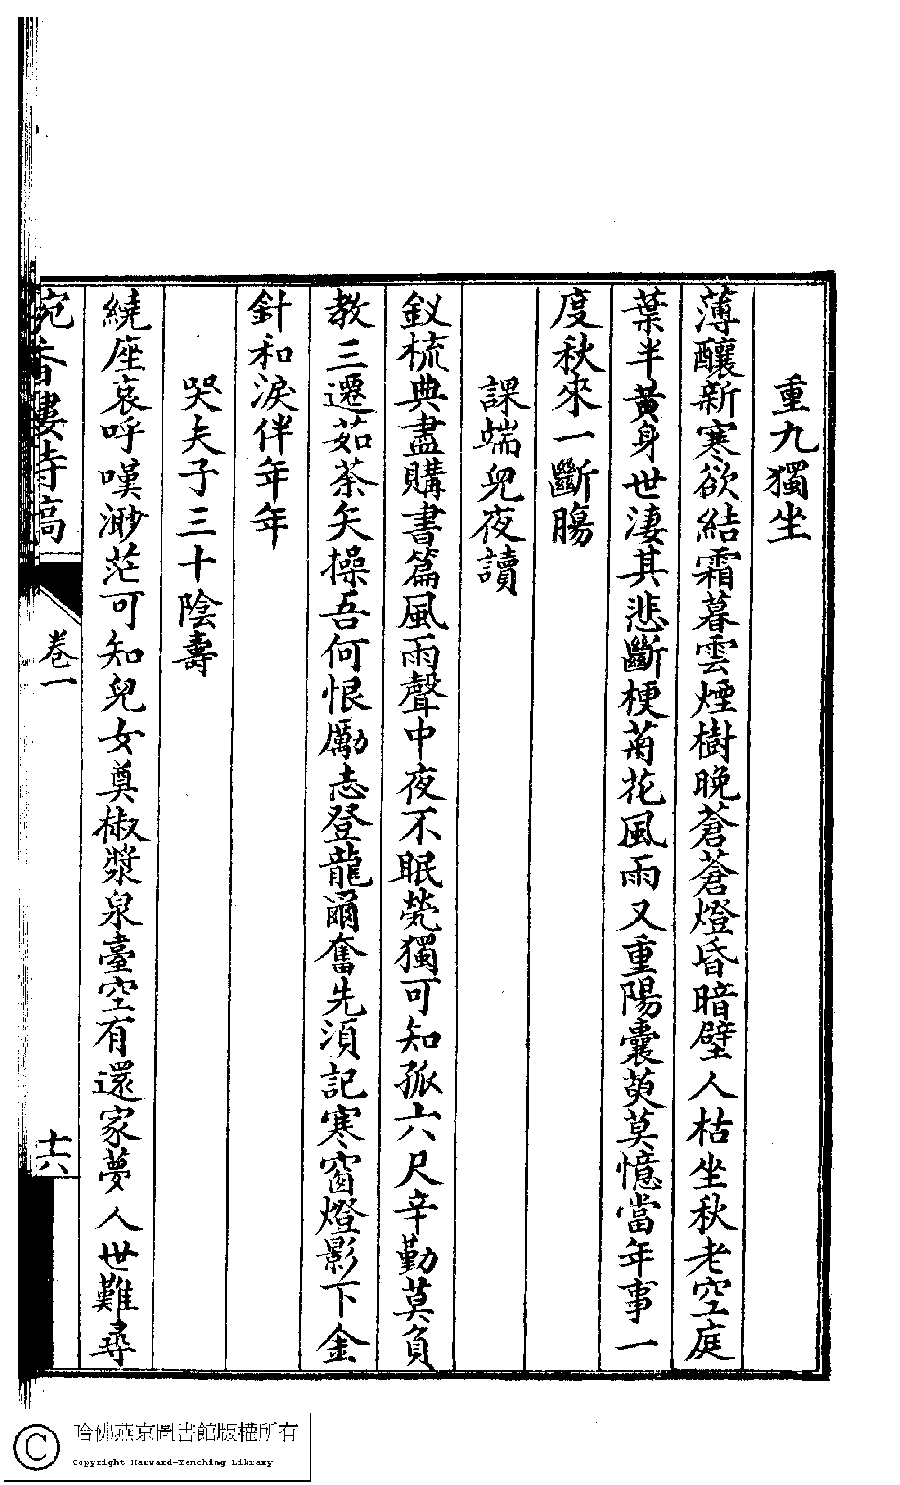 重九獨坐
薄釀新寒欲結霜暮雲煙樹晚蒼蒼燈昏暗壁人枯坐秋老空庭
葉半黃身世淒其悲斷梗菊花風雨又重陽囊萸莫憶當年事一
度秋來一斷腸
課端兒夜讀
釵梳典盡購書篇風雨聲中夜不眠煢獨可知孤六尺辛勤莫負
教三遷茹荼矢操吾何恨勵志登龍爾奮先須記寒窗燈影下金
針和淚伴年年
哭夫子三十陰壽
繞座哀呼嘆渺茫可知兒女奠椒漿泉臺空有還家夢人世難尋
宛香樓詩高
卷一
十六
哈佛燕京圖書館版權所有
Copyright Harvard-Yenching Library